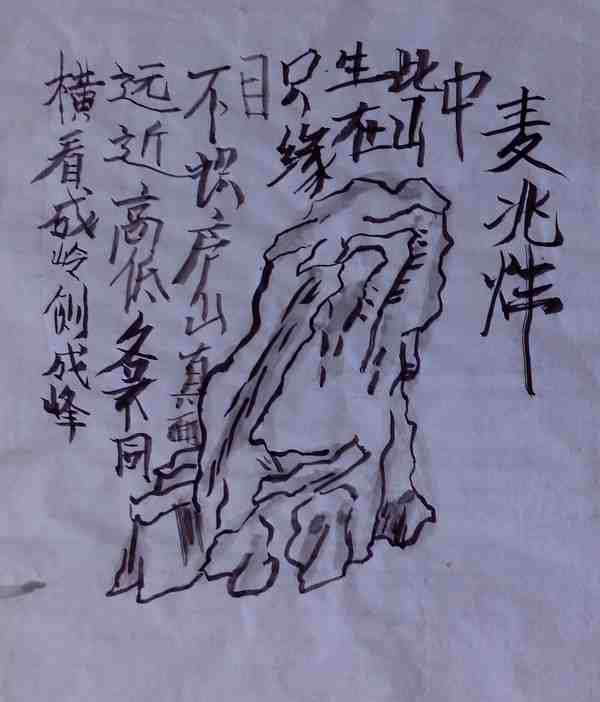 横看成岭侧成峰
远近高低各不同
不识庐山真面
目
只缘
生在
此山
中
麦兆炜